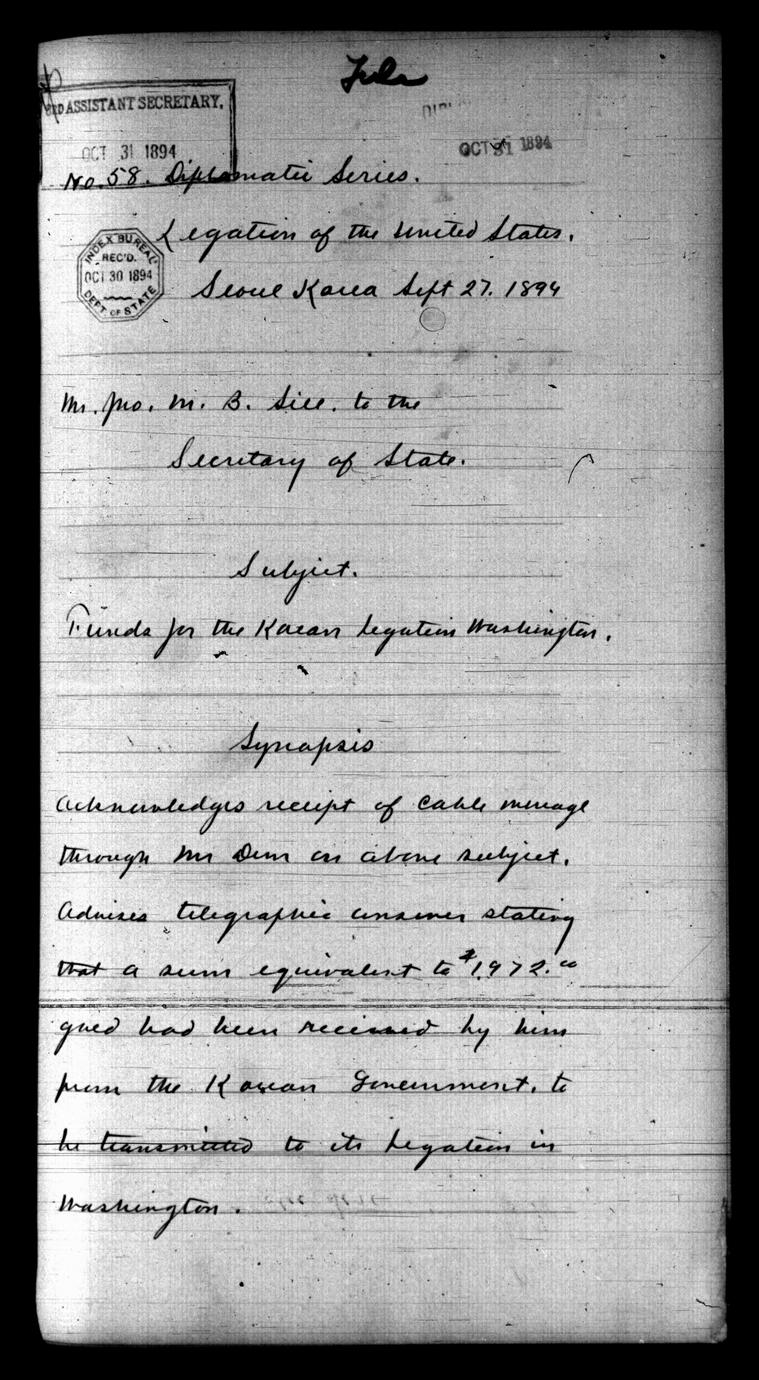 File
3RD ASSISTANT SECRETARY,
OCT 31 1894
DIPL
OCT 31 1894
No. 58. Diplomatic Series.
Legation of the United States.
INDEX BUREAU
REC'D.
OCT 30 1894
DEPT. OF STATE
Seoul Korea Sept 27. 1894
Mr. Jno. M. B. Sill. to the
Secretary of State.
Subject.
Funds for the Korean Legation Washington.
Synopsis
Acknowledges receipt of cable message
through Mr Dun on above subject.
Advises telegraphic answer stating
that a sum equivalent to $1,972.00
gold had been received by him
from the Korean Government. to
be transmitted to its Legation in
Washington.